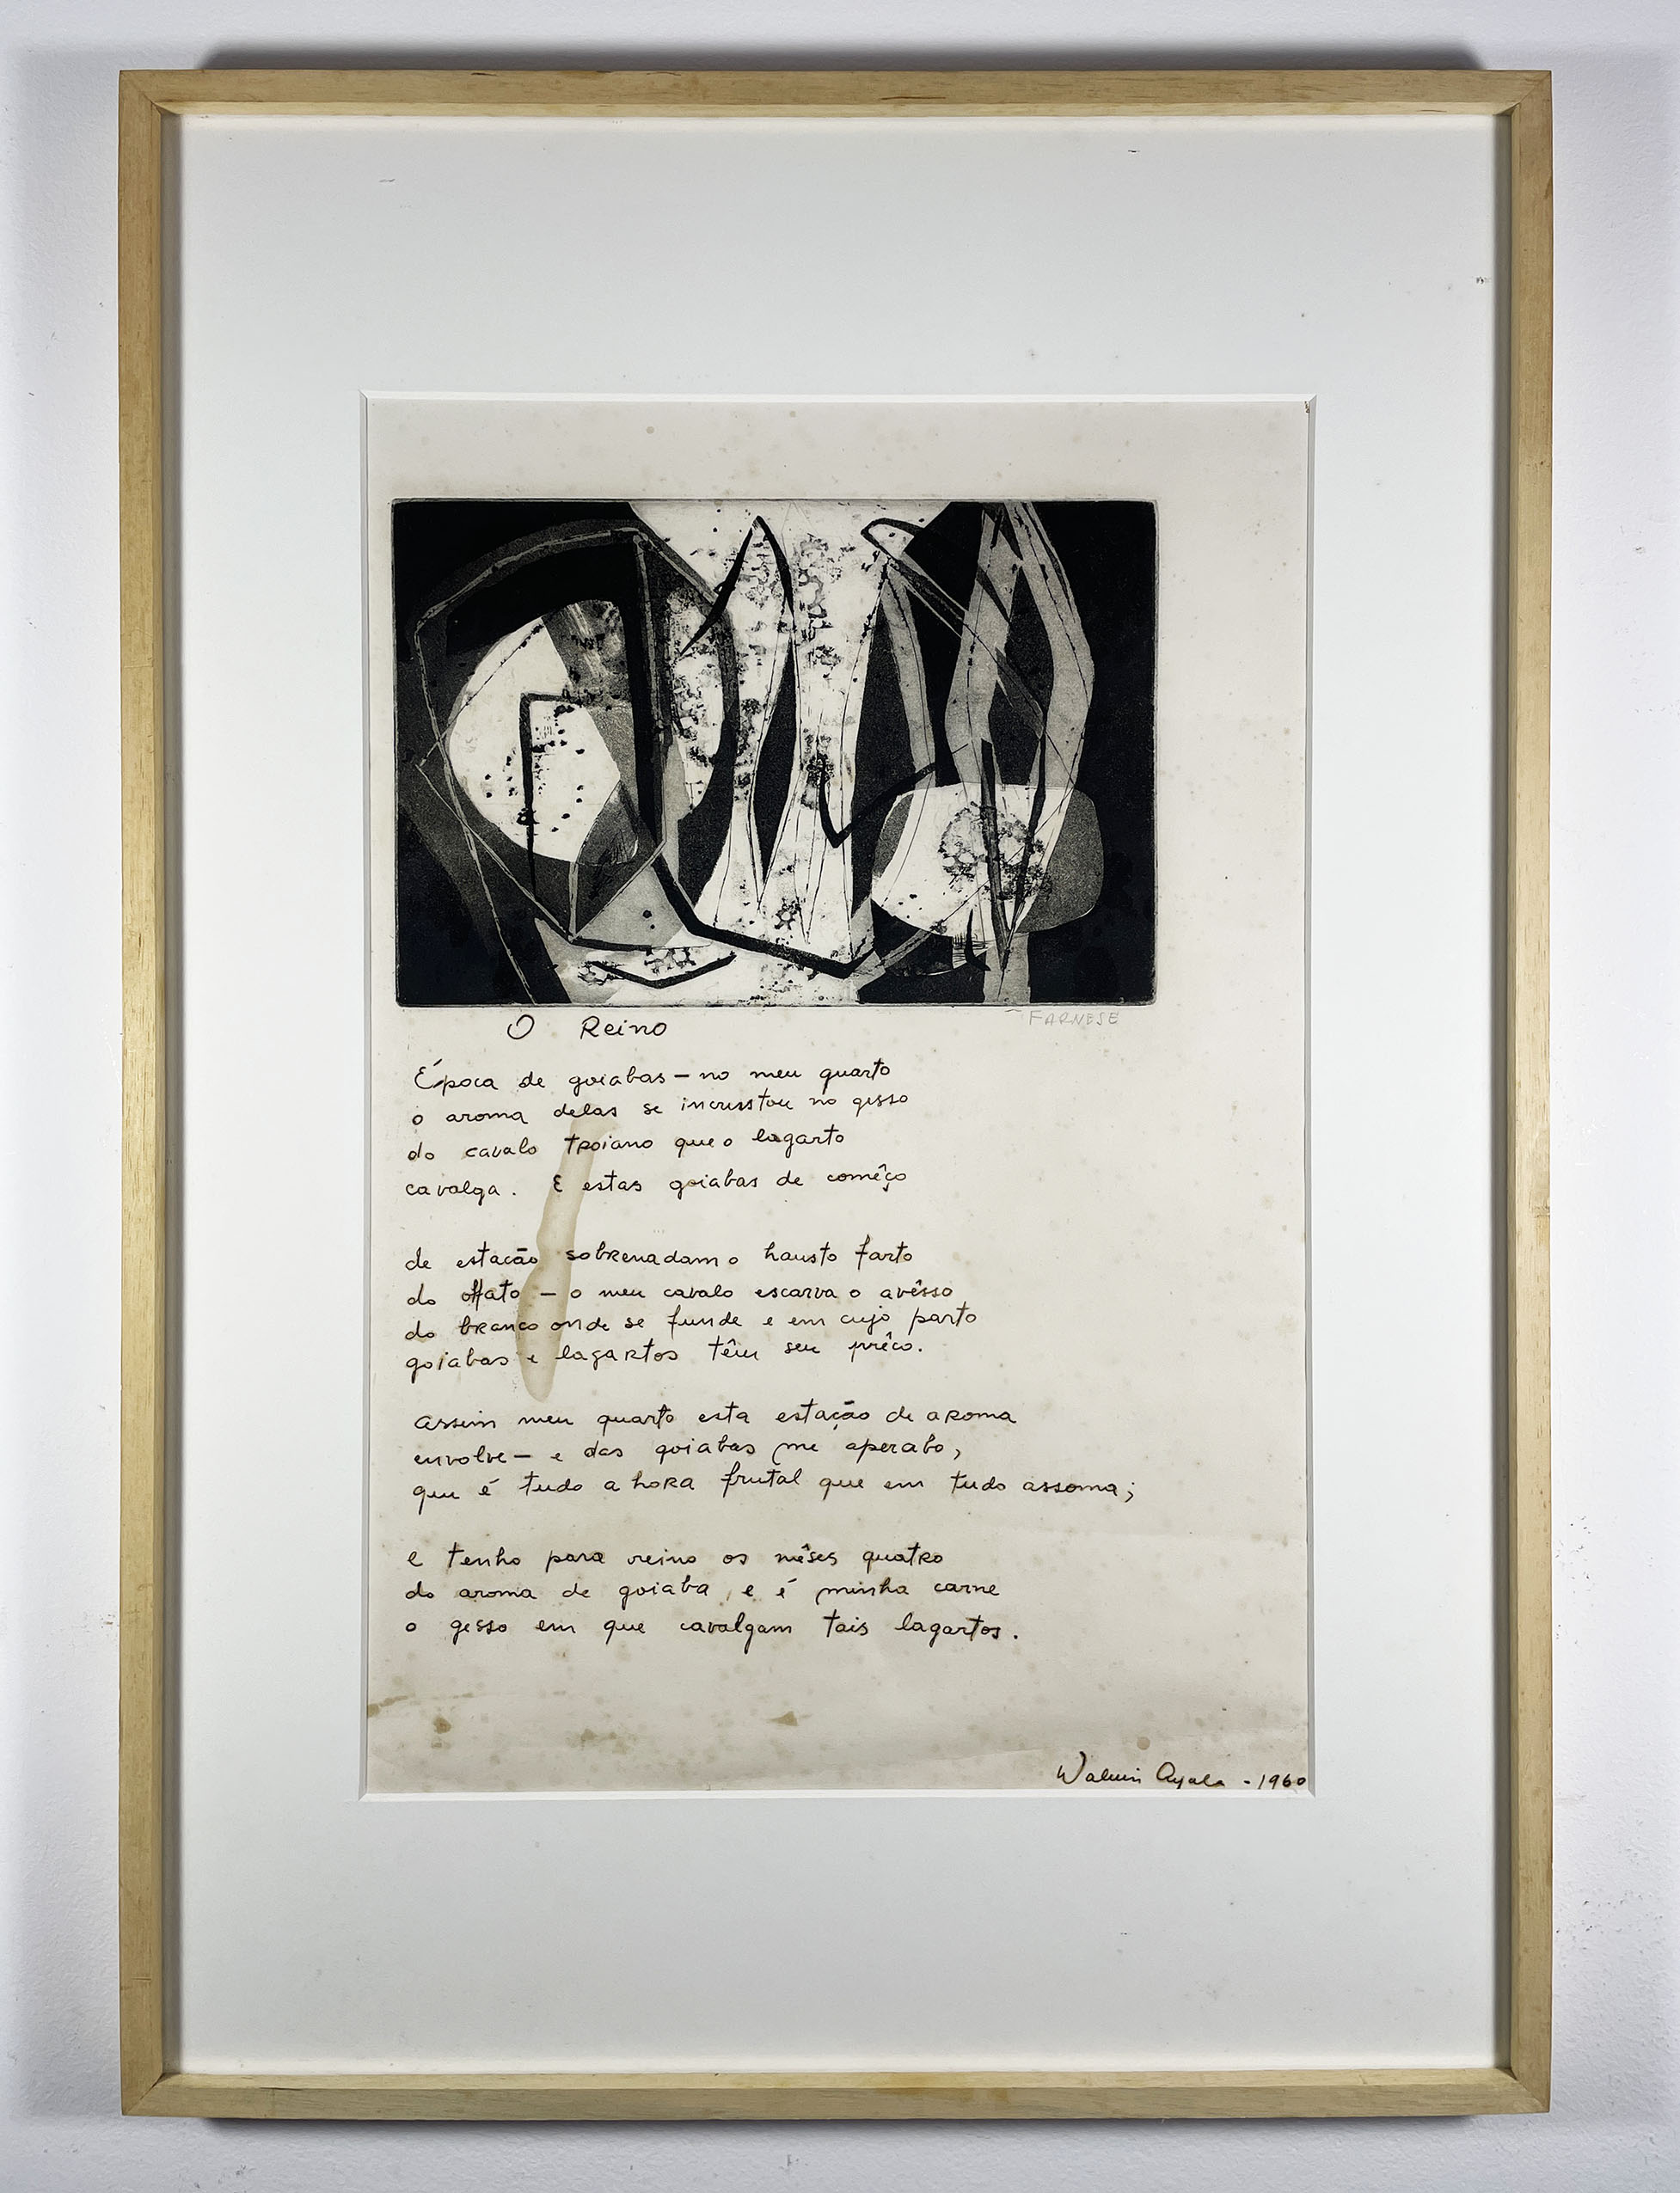 FARNESE
O Reino
Época de goiabas – no meu quarto
o aroma delas se incrustou no gesso
do cavalo troiano que o lagarto
cavalga. E estas goiabas de comêço
de estacão sobrenadam o hausto farto
do – o meu cavalo escarva o avêsso
do branco onde se funde e em cujo parto
goiabas e lagartos têm seu prêço.
Assim meu quarto esta estação de aroma
envolve – e das goiabas me aperabo,
que é tudo a hora frutal que em tudo assoma;
e tenho para reino os mêses quatro
do aroma de goiaba, e é minha carne
o gesso em que cavalgam tais lagartos.
Walmir Ayala - 1960